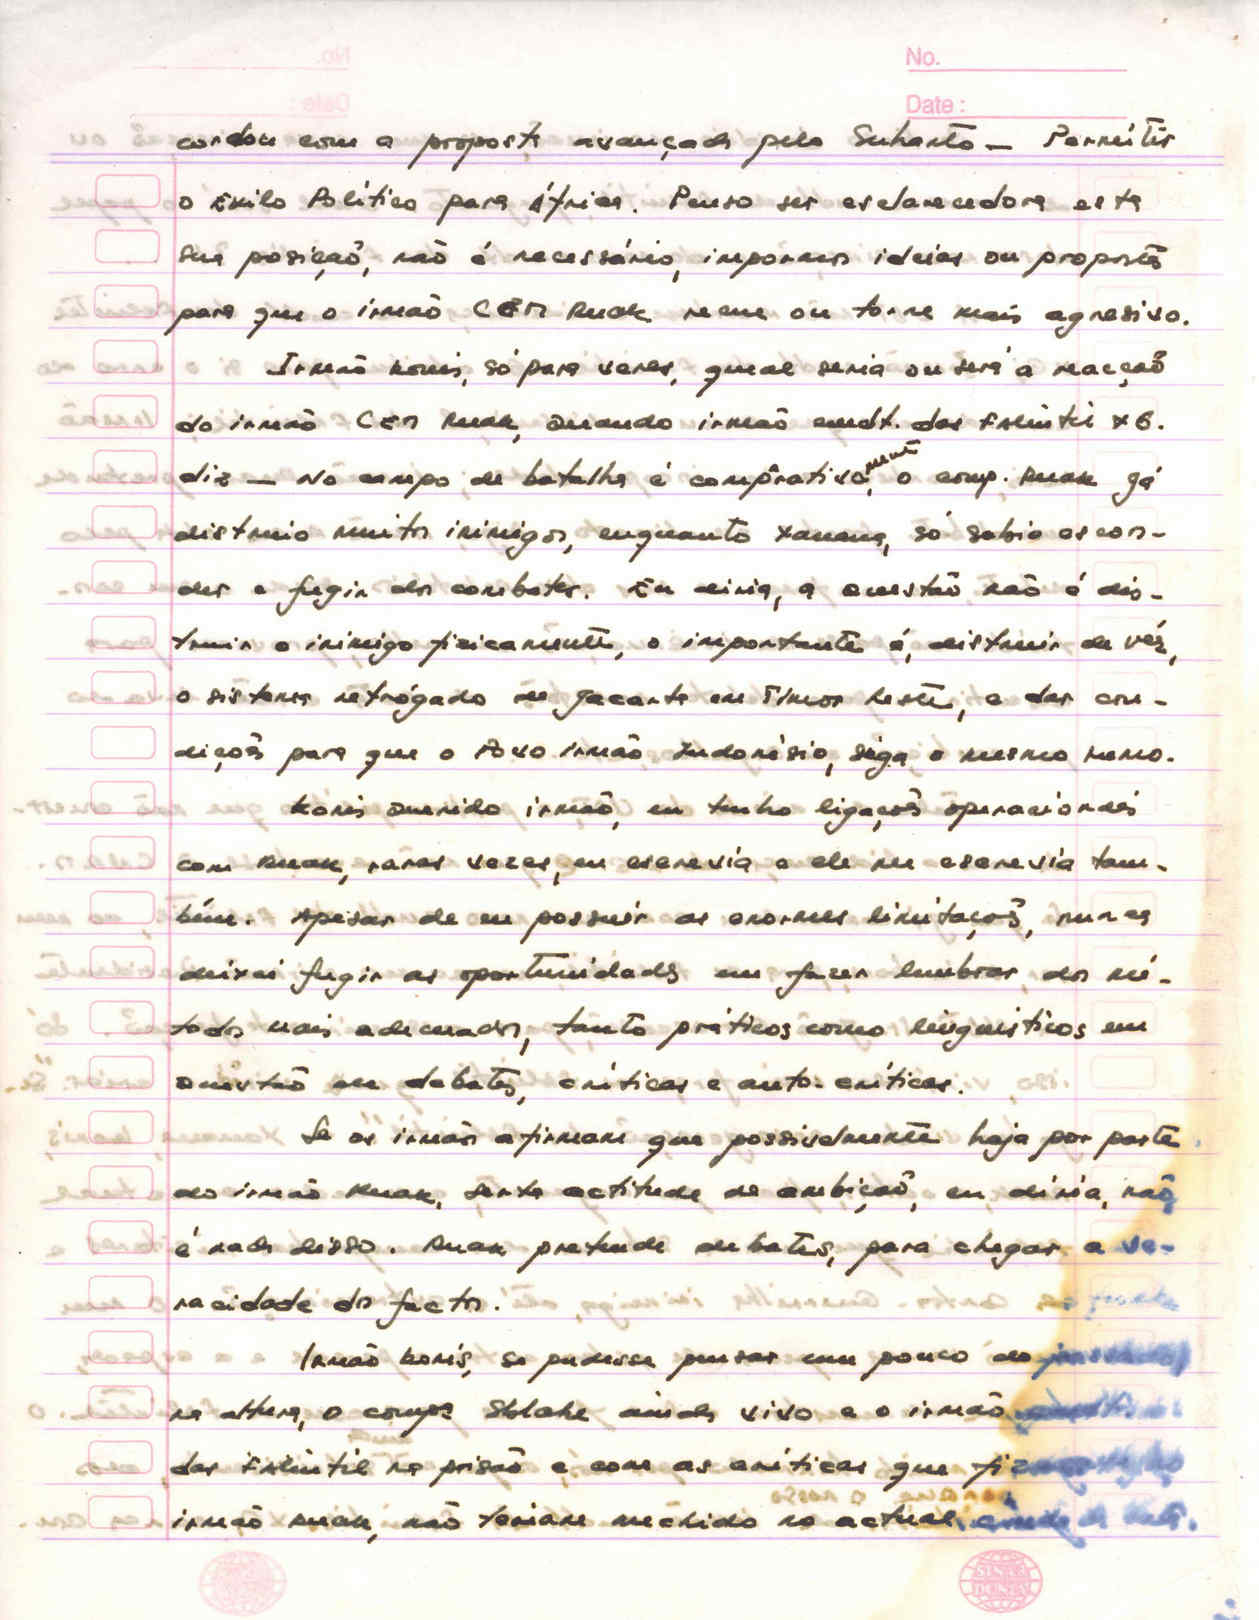 No.
Date :
cordou com a proposta avançada pelo Suharto — Permitir
o Exilo Político para África. Penso ser esclarecedora esta
sua posição, não é necessário, impormos ideias ou propostas
para que o irmão CEM Ruak reme ou torne mais agresivo.
Irmão Konis, só para veres, qual seria ou será a reacção
do irmão CEM Ruak, quando irmão cmdt. das Falintil XG.
diz — No campo de batalha é compârativamente, o comp. Ruak já
distruio muitos inimigos, enquanto Xanana, só sabio escon-
der e fugir dos combates. Eu diria, a questão não é dis-
truir o inimigo fisicamente, o importante é, distruir de véz,
o sistema retrógado de Jacarta em Timor Leste, e dar con-
dições para que o Povo irmão Indonésio, siga o mesmo rumo.
Konis querido irmão, eu tenho ligações operacionais
com Ruak, raras vezes, eu escrevia e ele me escrevia tam-
bém. Apesar de eu possuir as enormes limitações, nunca
deixei fugir as oportunidades em fazer lembrar dos mé-
todos mais adecuados, tanto práticos como linguísticos em
questão em debates, críticas e auto-críticas.
Se os irmãos afirmam que possivelmente haja por parte
do irmão Ruak, certa actitude de ambição, eu diria, não
é nada disso. Ruak pretende debates, para chegar a ve-
racidade do factos.
Irmão Konis, se pudesse pensar um pouco do passado,
na altura, o compº Sblake ainda vivo e o irmão
das Falintil na prisão e com as críticas que
irmão Ruak, não teriam mechido no actual
SINAR DUNIA